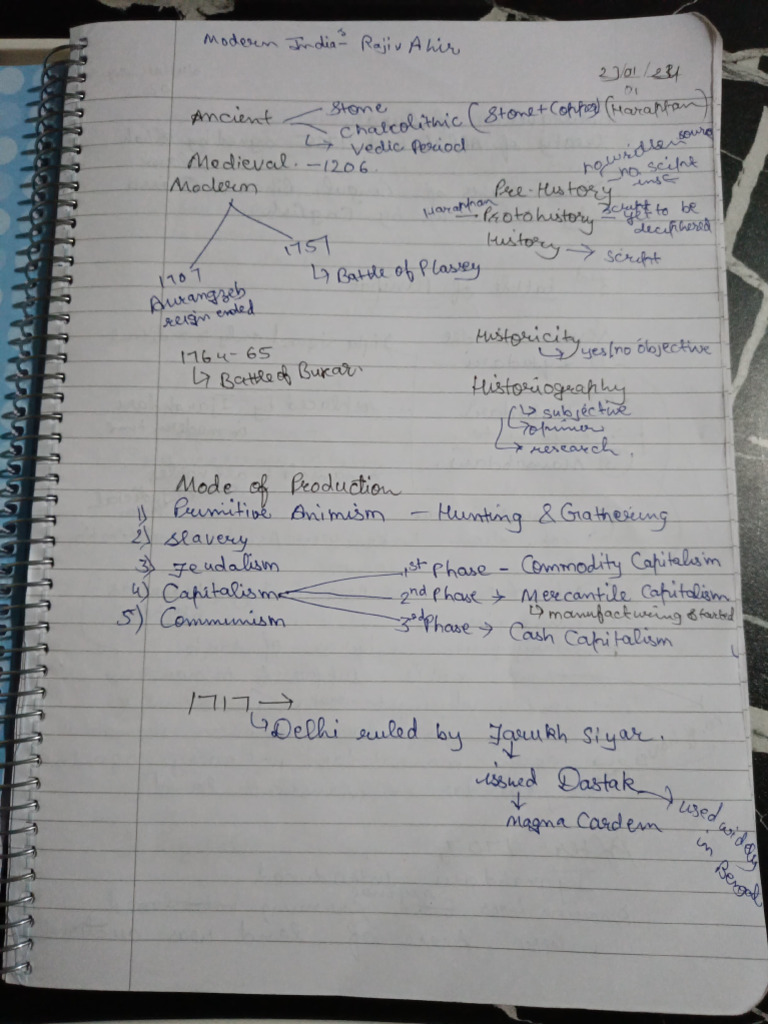 Modern India :- Rajiv Ahir
23/01/24
01
Ancient
Stone
Chalcolithic (Stone + Copper) (Harappan)
↳ Vedic Period
Medieval. - 1206
Modern
1707
Aurangzeb
reign ended
1757
↳ Battle of Plassey
no written source
no script
Pre-History
Harappan
Protohistory - script yet to be
deciphered
History → script
1764-65
↳ Battle of Buxar.
Historicity
↳ yes/no objective
Historiography
↳ subjective
↳ opinion
↳ research.
Mode of Production
1) Primitive Animism - Hunting & Gathering
2) Slavery
3) Feudalism
4) Capitalism
5) Communism
1st Phase - Commodity Capitalism
2nd Phase → Mercantile Capitalism
↳ manufacturing started
3rd Phase → Cash Capitalism
1717 →
↳ Delhi ruled by Farukh Siyar.
↓
issued Dastak → used widely
in Bengal
↓
Magna Cardem